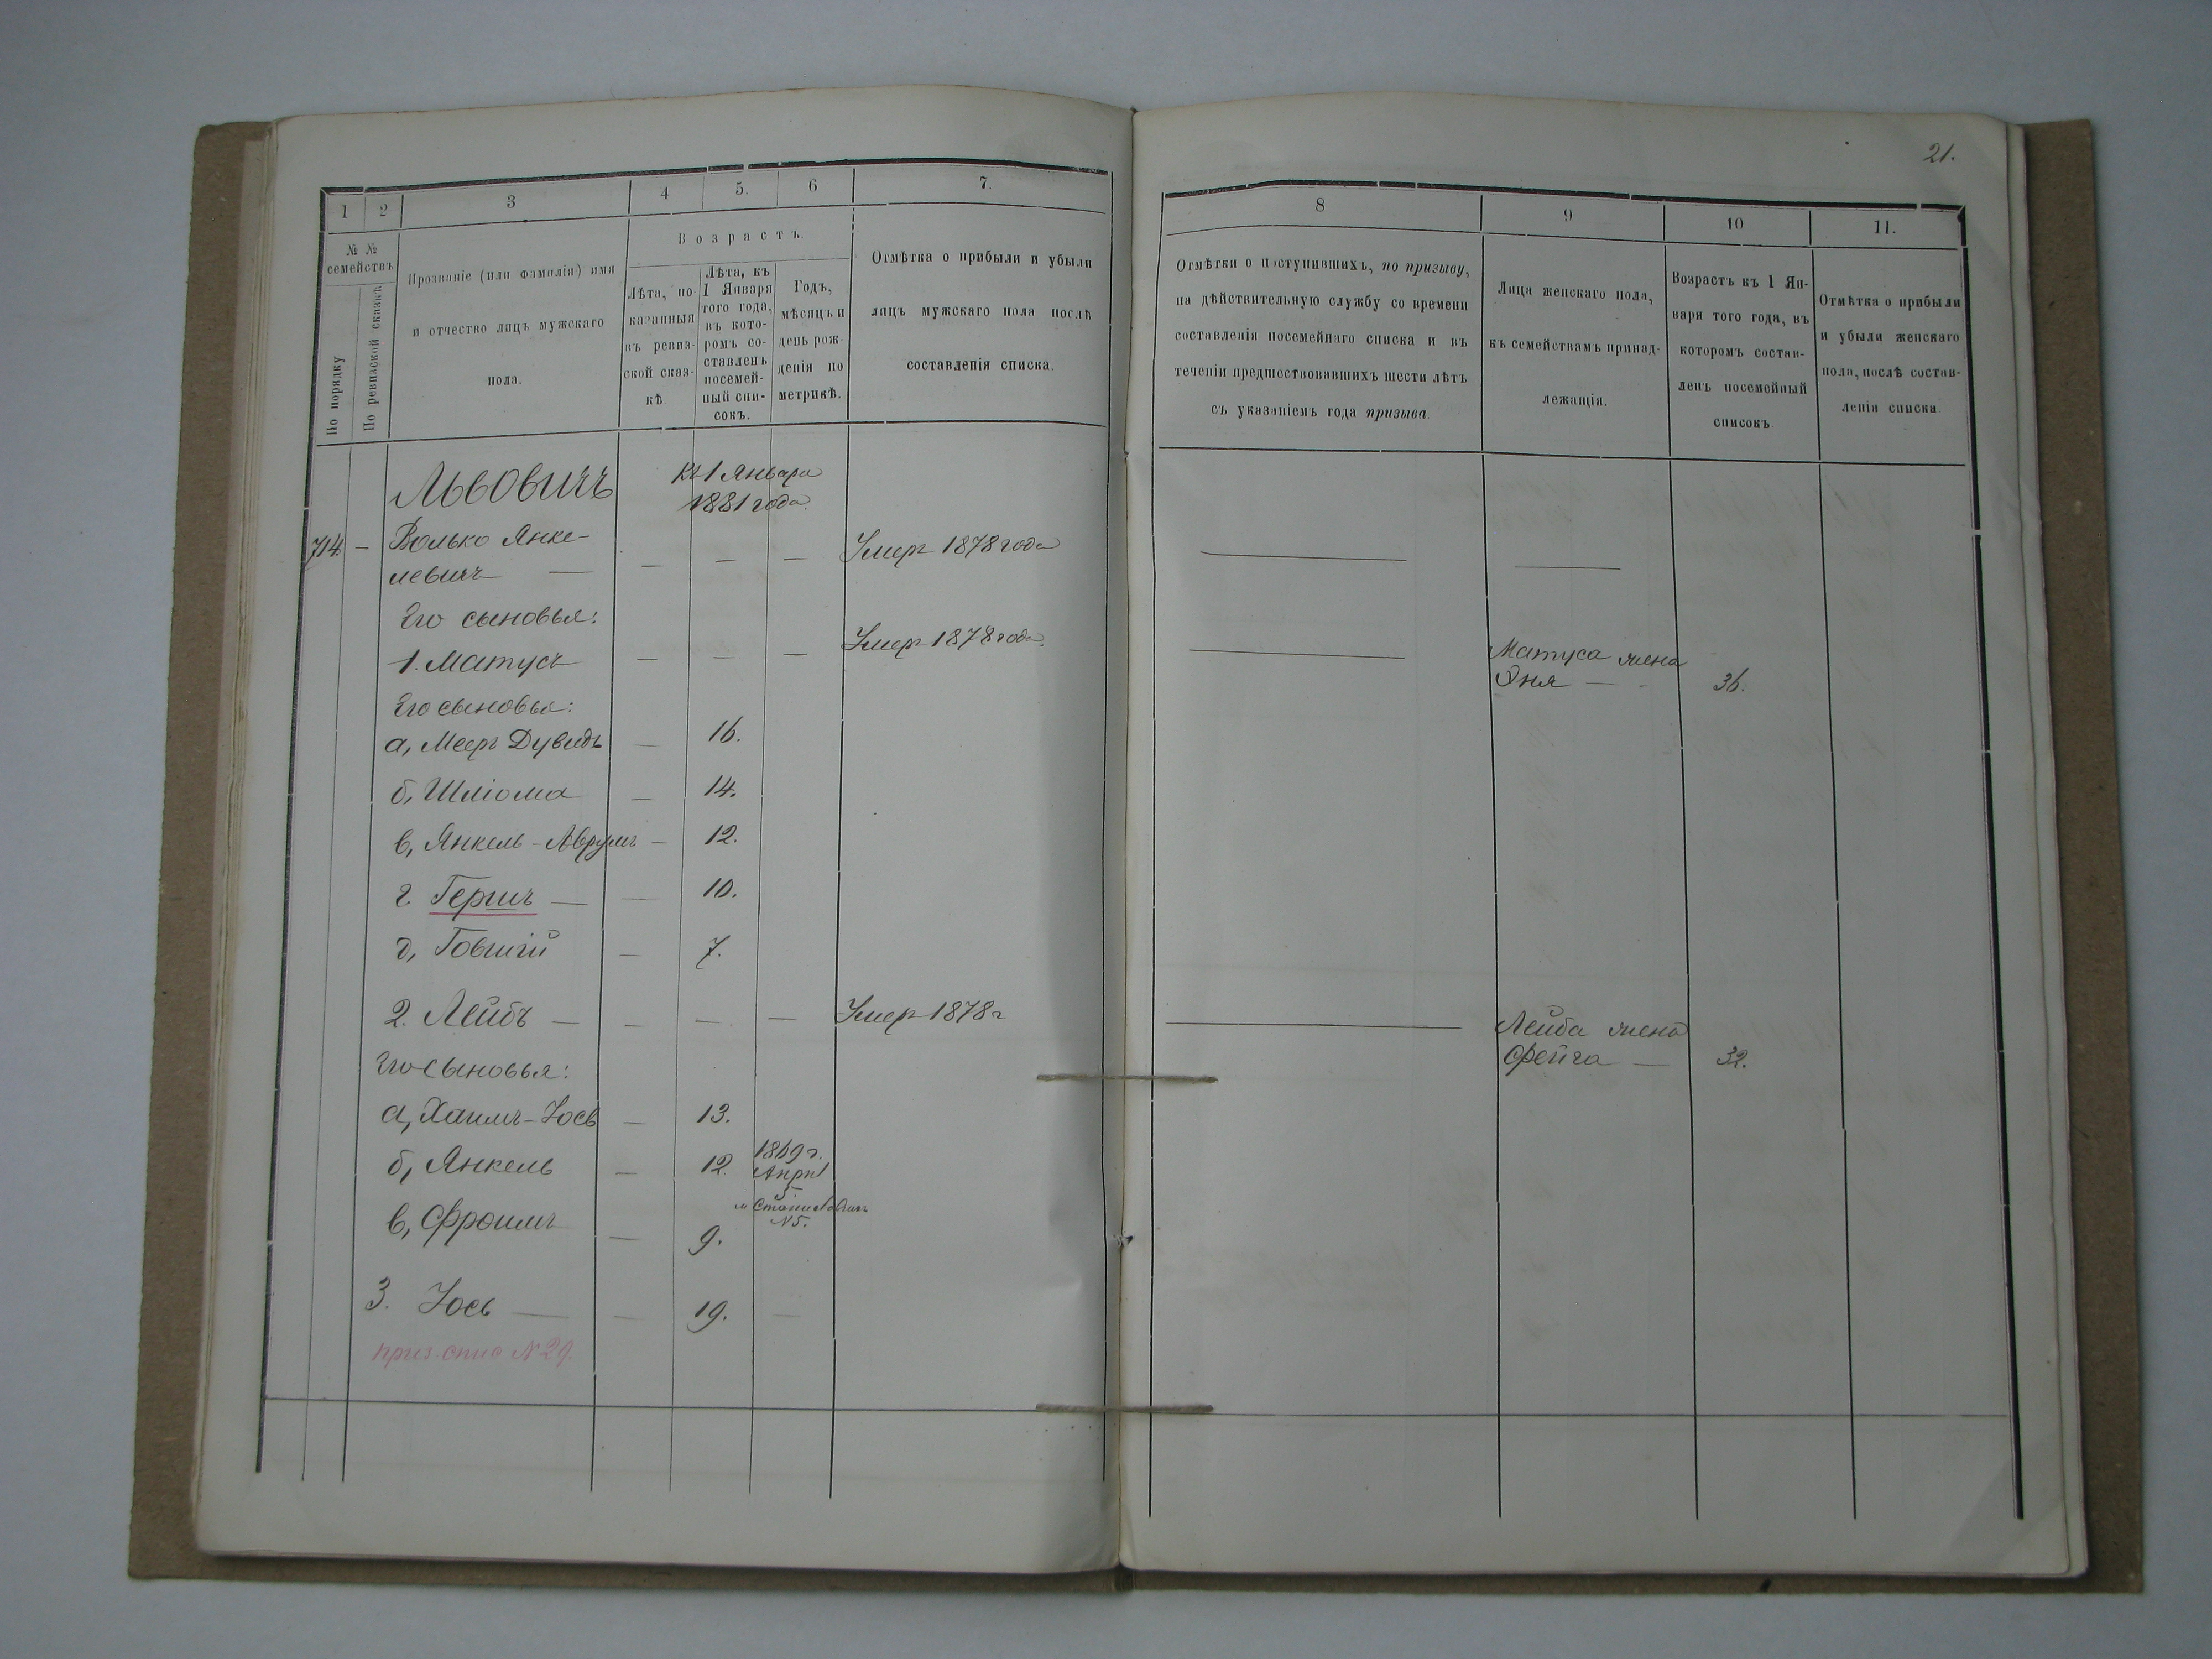 21.
1
2
3
4
5.
6
7.
8
9
10
11.
№ №
семействъ
По порядку
По ревизской сказкѣ
Прозваніе (или фамилія) имя
и отчество лицъ мужскаго
пола.
Возрастъ.
Лѣта, по-
казанныя
въ ревиз-
ской сказ-
кѣ
Лѣта, къ
1 Января
того года,
въ кото-
ромъ со-
ставленъ
посемей-
ный спи-
сокъ.
Годъ,
мѣсяцъ и
день рож-
денія по
метрикѣ.
Отмѣтка о прибыли и убыли
лицъ мужскаго пола послѣ
составленія списка.
Отмѣтки о поступившихъ, по призыву,
на дѣйствительную службу со времени
составленія посемейнаго списка и въ
теченіи предшествовавшихъ шести лѣтъ
съ указаніемъ года призыва.
Лица женскаго пола,
къ семействамъ принад-
лежащія.
Возрастъ къ 1 Ян-
варя того года, въ
которомъ состав-
ленъ посемейный
списокъ.
Отмѣтка о прибыли
и убыли женскаго
пола, послѣ состав-
ленія списка.
Львовичъ
къ 1 Января
1881 года.
714 — Волько Янке-
левичъ — — — — Умеръ 1878 года
Его сыновья:
1. Матусъ — — — Умеръ 1878 года.
Матуса жена
Эня — - 36.
Его сыновья:
а, Мееръ Дувидъ — 16.
б, Шліома — 14.
в, Янкель-Аврумъ — 12.
г. Гершъ — — 10.
д, Говшій — 7.
2. Лейбъ — — — — Умеръ 1878 г
Лейба жена
Фейга — 32.
Его сыновья:
а, Хаимъ-Іось — 13.
б, Янкель — 12. 1869 г.
Апрѣл
5
м Станиславчикъ
N 5.
в, Фроимъ — 9.
3. Іось — — 19. —
приз. спис N 29.